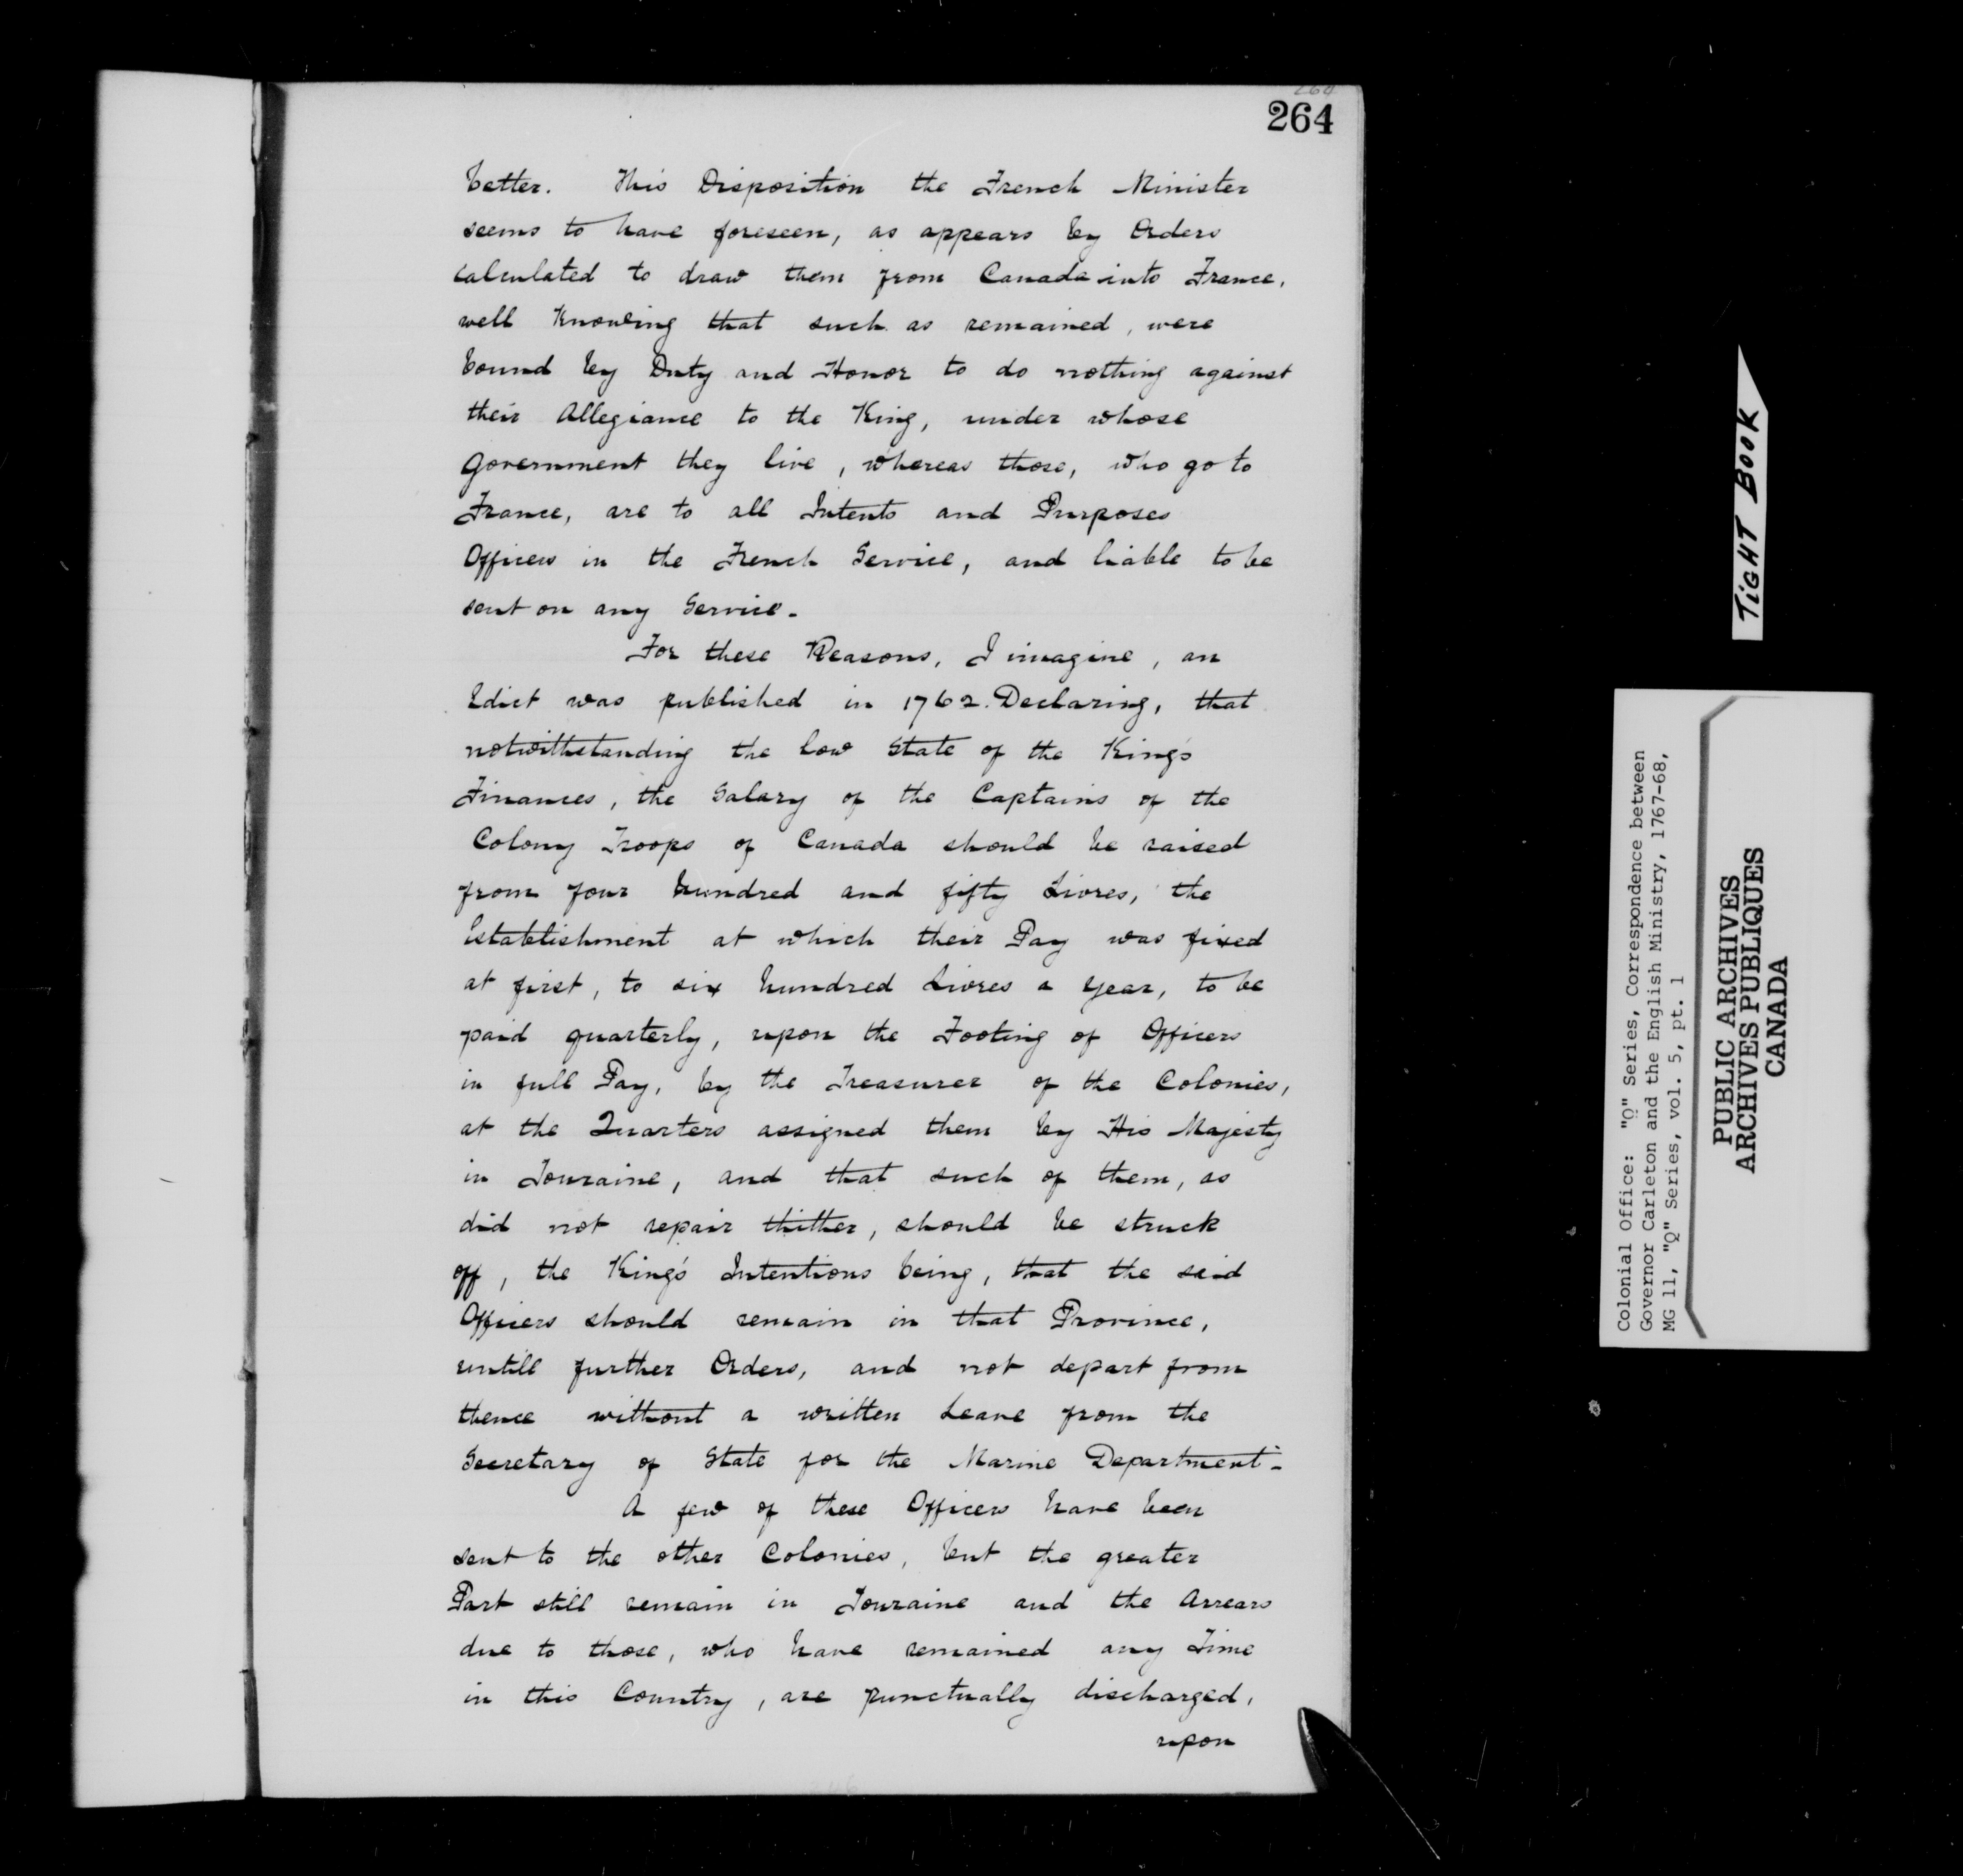 264
264
better. This Disposition the French Minister
seems to have foreseen, as appears by Orders
calculated to draw them from Canada into France,
well knowing that such as remained, were
bound by Duty and Honor to do nothing against
their Allegiance to the King, under whose
Government they live, whereas those, who go to
France, are to all Intents and Purposes
Officers in the French Service, and liable to be
sent on any Service.
For these Reasons, I imagine, an
Edict was published in 1762. Declaring, that
notwithstanding the low State of the King's
Finances, the Salary of the Captains of the
Colony Troops of Canada should be raised
from four hundred and fifty Livres, the
Establishment at which their Pay was fixed
at first, to six hundred Livres a year, to be
paid quarterly, upon the Footing of Officers
in full Pay, by the Treasurer of the Colonies,
at the Quarters assigned them by His Majesty
in Touraine, and that such of them, as
did not repair thither, should be struck
off, the King's Intentions being, that the said
Officers should remain in that Province,
untill further Orders, and not depart from
thence without a written Leave from the
Secretary of State for the Marine Department.-
A few of these Officers have been
sent to the other Colonies, but the greater
Part still remain in Touraine and the Arrears
due to those, who have remained any Time
in this Country, are punctually discharged,
upon
TIGHT BOOK
Colonial Office: "Q" Series, Correspondence between
Governor Carleton and the English Ministry, 1767-68,
MG 11, "Q" Series, vol. 5, pt. 1
PUBLIC ARCHIVES
ARCHIVES PUBLIQUES
CANADA